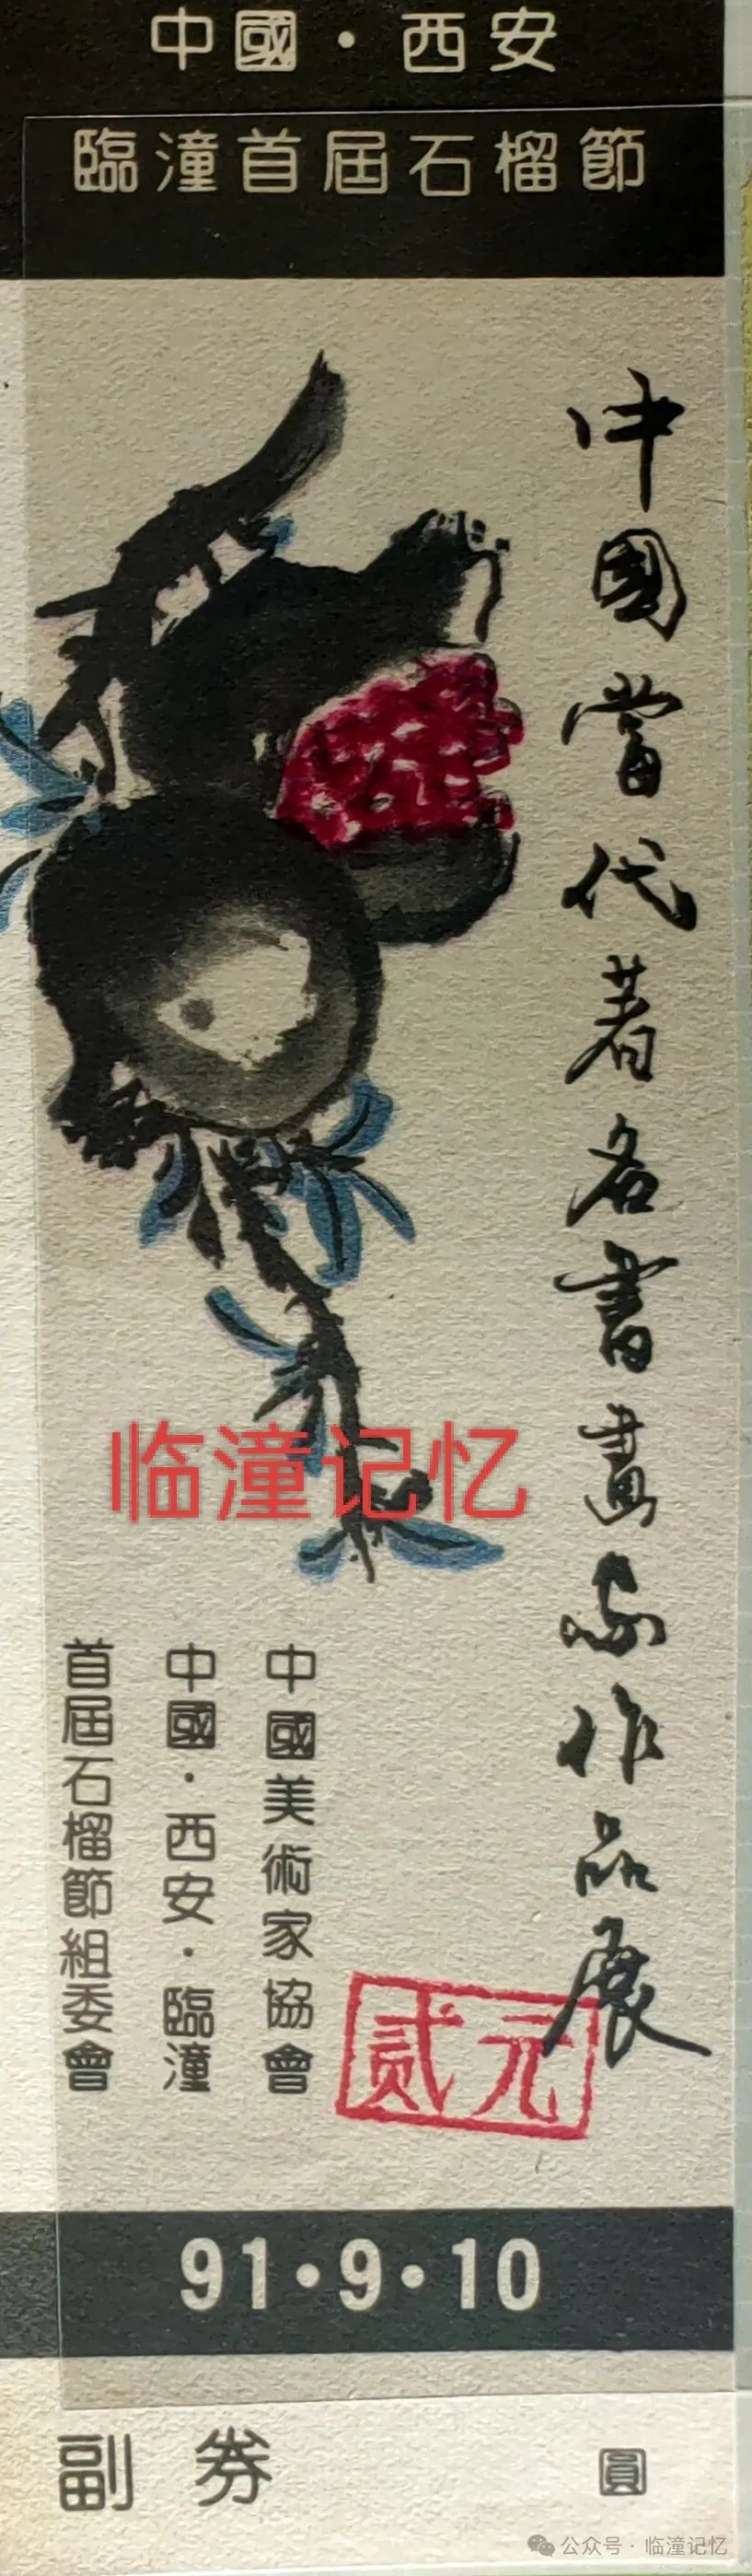 中國·西安
臨潼首屆石榴節
中國當代著名書畫家作品展
临潼记忆
中國美術家協會
中國·西安·臨潼
首屆石榴節組委會
贰元
91·9·10
副券 圓
公众号·临潼记忆